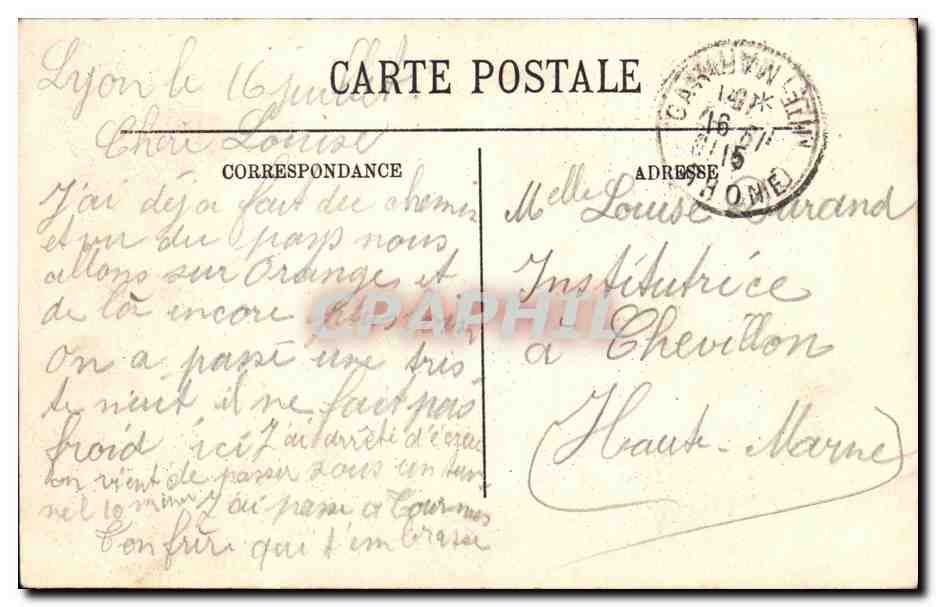 CARTE POSTALE
Lyon le 16 juillet
Chère Louise
CORRESPONDANCE
J'ai déja fait du chemin
et vu du pays nous
allons sur Orange et
de là encore plus loin
On a passé une tris
te nuit il ne fait pas
froid ici J'ai arrêté d'écrire
on vient de passer sous un tun
nel 10 minutes J'ai passé a Tournus
Ton frère qui t'embrasse
ADRESSE
Melle Louise Durand
Institutrice
à Chevillon
Haute-Marne
16
15
RHONE
CPAPHIL